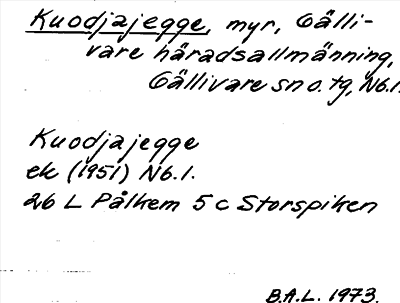 Kuodjajegge, myr, Gälli-
vare häradsallmänning,
Gällivare sn o. tg, Nb.l.
Kuodjajegge
ek (1951) Nb.l.
26 L Pålkem 5 c Storspiken
B.A.L. 1973.